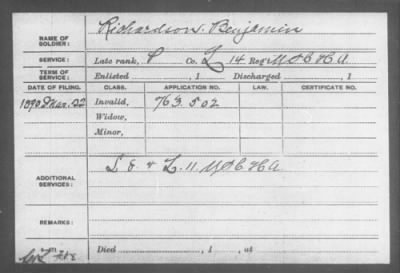 NAME OF SOLDIER: Richardson, Benjamin
SERVICE: Late rank, P Co. L, 14 Reg't U.S.C.H.A.
TERM OF SERVICE: Enlisted , 1 Discharged , 1
DATE OF FILING. CLASS. APPLICATION NO. LAW. CERTIFICATE NO.
1890 Mar. 22 Invalid, 763.502
Widow,
Minor,
ADDITIONAL SERVICES: & L. 11 U.S.C.H.A.
REMARKS:
Died , 1 , at